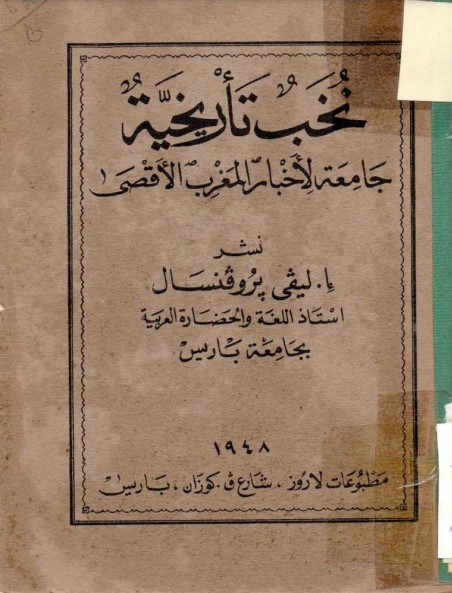 نُخَبٌ تَأْرِيخِيَّةٌ
جَامِعَة لِأَخْبَار المَغْرِب الأَقْصَى
نشر
إ. ليڤي پرُوڤنسال
استاذ اللغة والحضارة العربية
بجامعَة بَاريس
١٩٤٨
مَطبُوعَات لاروز ، شارع ڤ. كوزان ، باريس